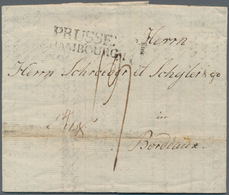 PRUSSE.
HAMBOURG
Herrn
Herrn Schröder et Schyler & Co
in
Bordeaux